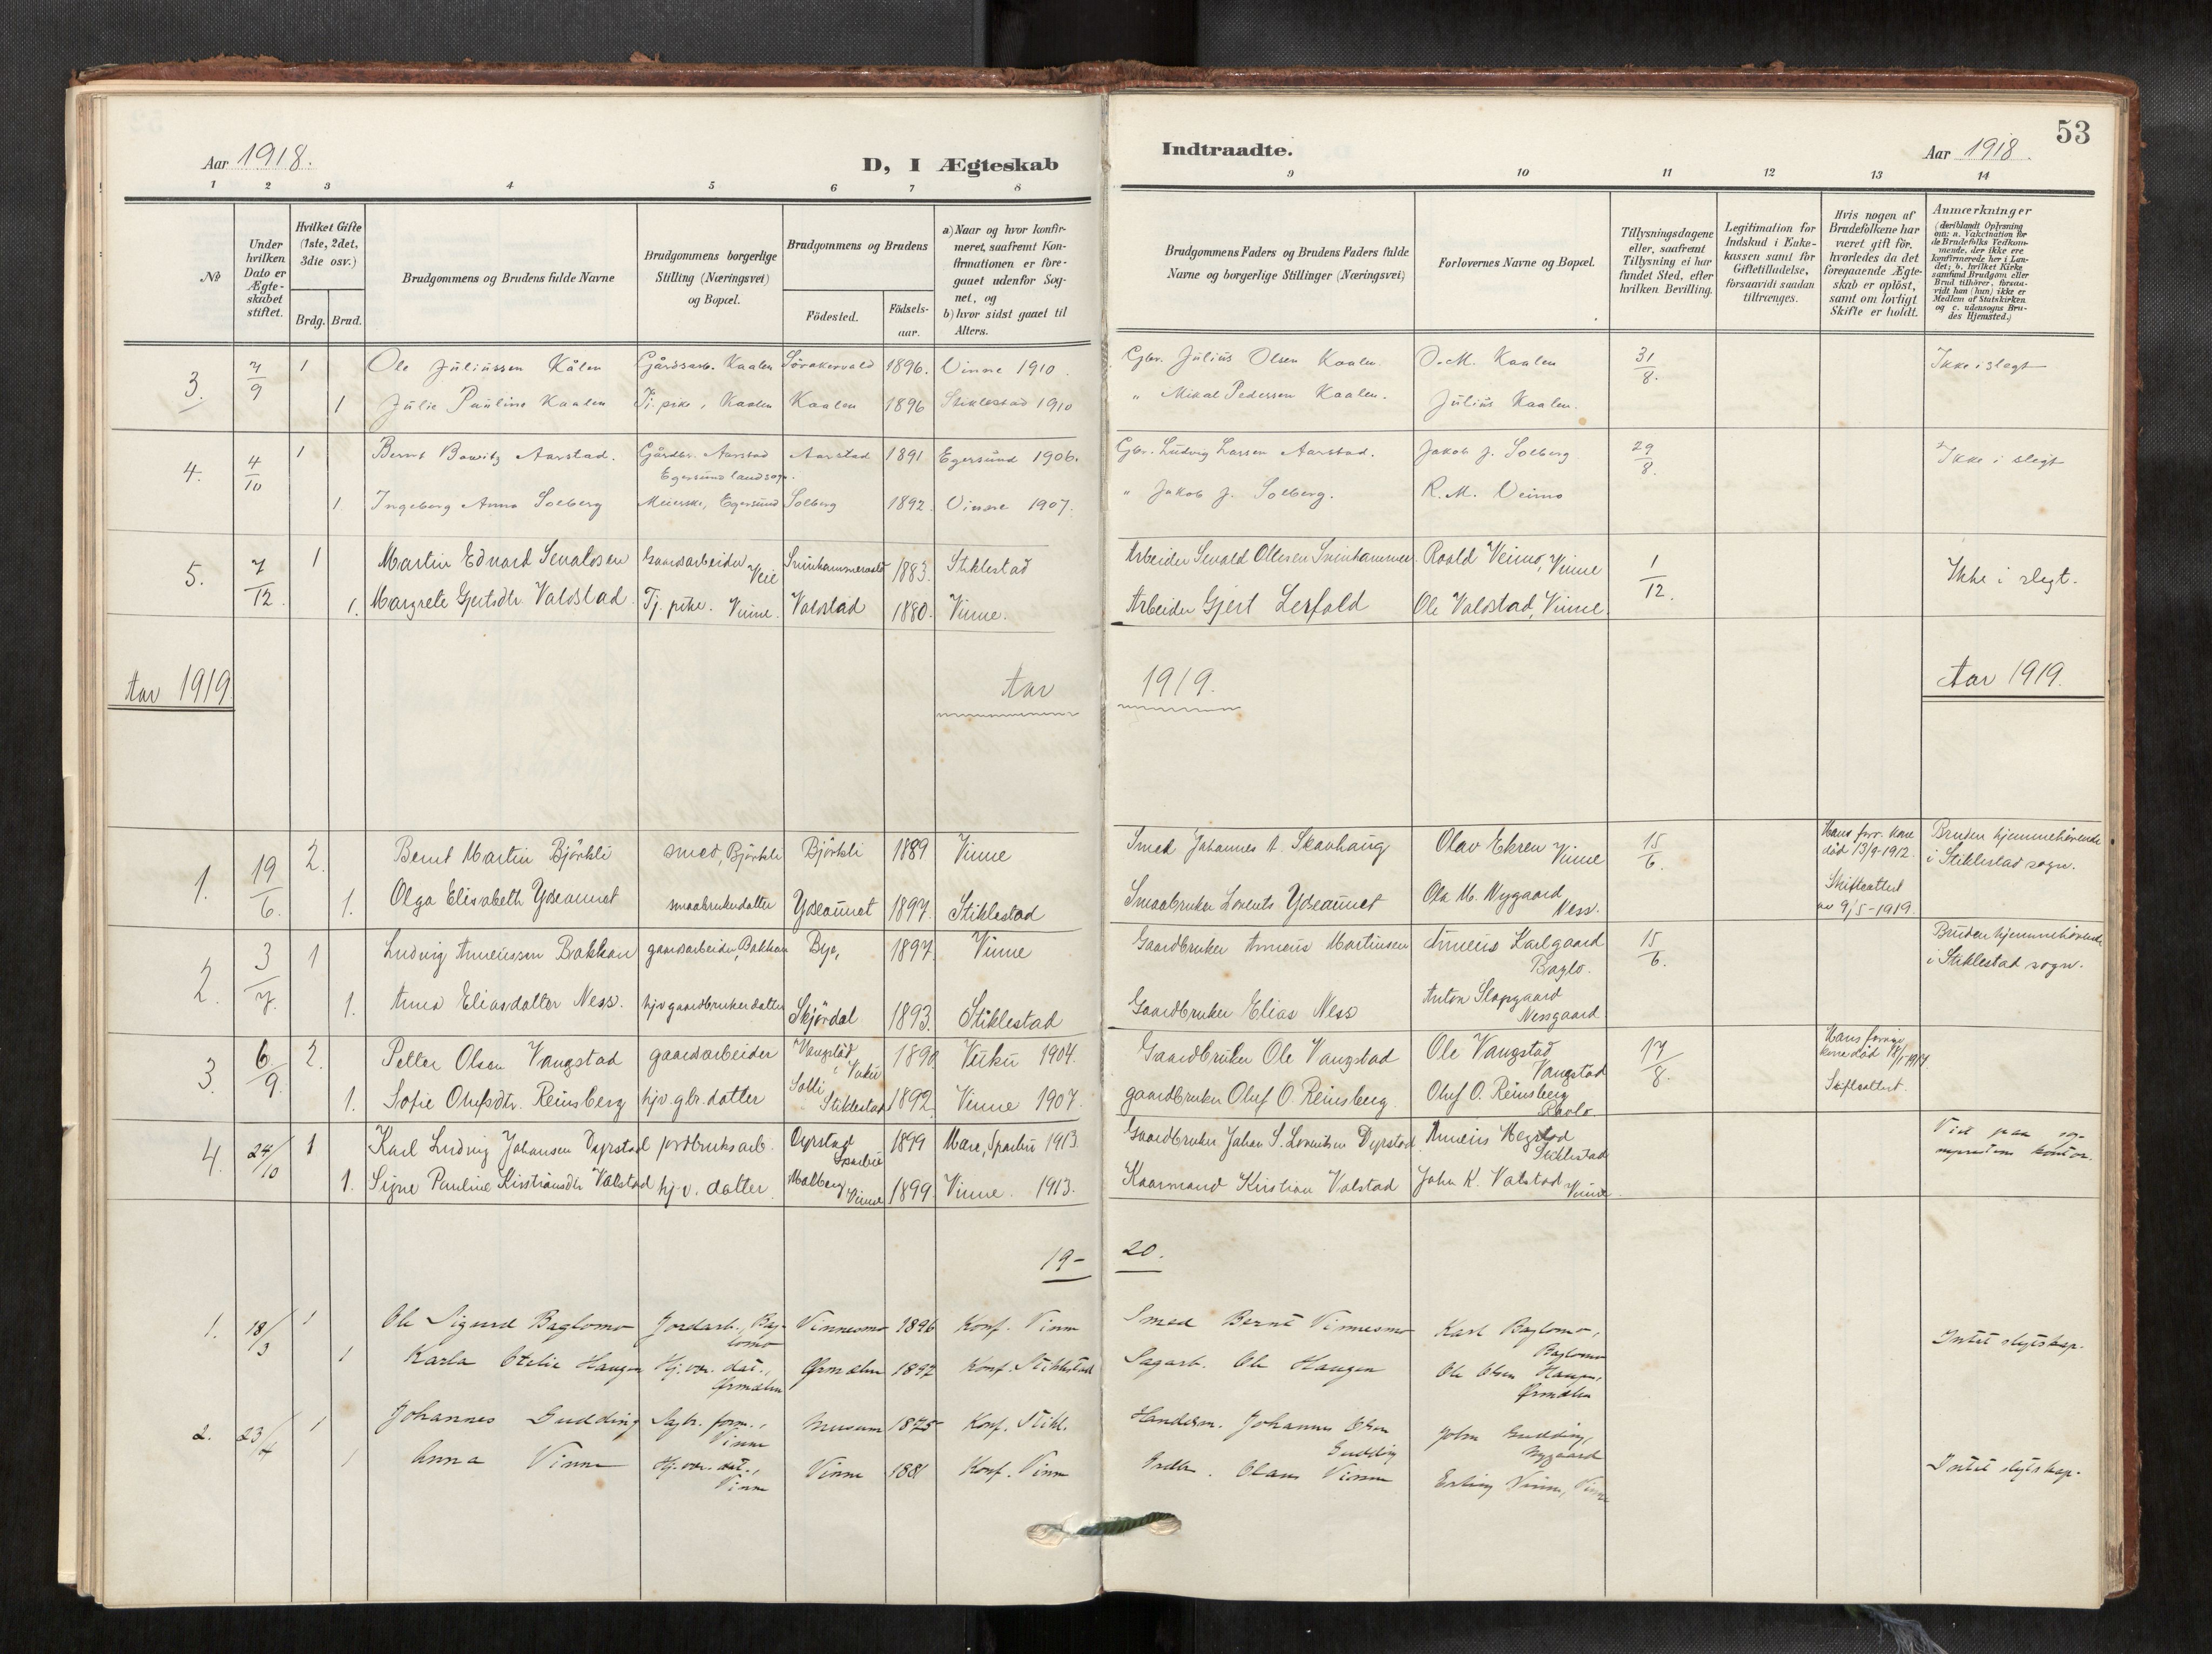 53
Aar 1918.
D, I Ægteskab
Indtraadte.
Aar 1918.
1 2 3 4 5 6 7 8 9 10 11 12 13 14
No
Under hvilken Dato er Ægteskabet stiftet.
Hvilket Gifte (1ste, 2det, 3die osv.)
Brdg. Brud.
Brudgommens og Brudens fulde Navne
Brudgommens borgerlige Stilling (Næringsvei) og Bopæl.
Brudgommens og Brudens
Födested.
Födsels-aar.
a) Naar og hvor konfir-
meret, saafremt Kon-
firmationen er fore-
gaaet udenfor Sog-
net, og
b) hvor sidst gaaet til
Alters.
Brudgommens Faders og Brudens Faders fulde
Navne og borgerlige Stillinger (Næringsvei)
Forlovernes Navne og Bopæl.
Tillysningsdagene
eller, saafremt
Tillysning ei har
fundet Sted, efter
hvilken Bevilling.
Legitimation for
Indskud i Enke-
kassen samt for
Giftetilladelse,
forsaavidt saadan
tiltrænges.
Hvis nogen af
Brudefolkene har
været gift för,
hvorledes da det
foregaaende Ægte-
skab er oplöst,
samt om lovligt
Skifte er holdt.
Anmærkninger
(deriblandt Oplysning
om: a. Vakcination for
de Brudefolks Vedkom-
mende, der ikke ere
konfirmerede her i Lan-
det; b. hvilket Kirke
samfund Brudgom eller
Brud tilhörer, forsaa-
vidt han (hun) ikke er
Medlem af Statskirken
og c. udensogns Bru-
des Hjemsted.)
3. 7/9 1 Ole Juliussen Kålen Gårdsarb. Kaalen 1896. Vinne 1910. Gbr. Julius Olsen Kaalen. O. M. Kaalen 31/8. Ikke i slegt
1 Julie Pauline Kaalen Tj. pike, Kaalen Kaalen 1896 Stiklestad 1910 " Mikal Pedersen Kaalen. Julius Kaalen.
4. 4/10 1 Bernt Bowitz Aarstad. Gårdbr. Aarstad Aarstad 1891 Egersund 1906. Gbr. Ludvig Larsen Aarstad. Jakob J. Solberg 29/8. Ikke i slegt
Egersund landsogn.
1. Ingeborg Anna Solberg Meierske, Egersund Solberg 1892. Vinne 1907. " Jakob J. Solberg. R. M. Veimo
5. 7/12. 1 Martin Edvard Sevaldsen Gaardsarbeider Veie 1883. Stiklestad Arbeider Sevald Ottesen Roald Veimo, Vinne 1/12. Ikke i slegt.
1. Margrete Gjertsdtr. Valdstad Tj. pike. Vinne. Valdstad 1880. Vinne. Arbeider Gjert Lerfald Ole Valdstad, Vinne.
Aar 1919. Aar 1919. Aar 1919.
1. 19/6. 2. Bernt Martin Björkli smed, Björkli Björkli 1889 Vinne Smed Johannes A. Skavhaug Olav Ekren Vinne 15/6. Hans forr. kone død 13/9-1912. Bruden hjemmehörende i Stiklestad sogn.
1. Olga Elisabeth Ydseaunet smaabrukerdatter Ydseaunet 1897. Stiklestad Smaabruker Lorents Ydseaunet Ole M. Nygaard Ness. Skifteattest av 9/5-1919.
2. 3/7. 1 Ludvig Anneussen Bakkan gaardsarbeider, Bakkan Bye, 1897. Vinne Gaardbruker Anneus Martinsen Anneus Karlgaard Baglo. 15/6. Bruden hjemmehörende i Stiklestad sogn.
1. Anna Eliasdatter Ness. hjv. gaardbrukerdatter Skjördal 1893. Stiklestad Gaardbruker Elias Ness Anton Slapgaard Nessgaard
3. 6/9. 2. Petter Olsen Vangstad gaardsarbeider Vangstad, Vuku 1890. Vuku 1904. Gaardbruker Ole Vangstad Ole Vangstad Vangstad 17/8.
Skifteattest.
1. Sofie Olufsdtr. Reinsberg hjv. gbr. datter Solli Stiklestad 1892. Vinne 1907. gaardbruker Oluf O. Reinsberg Oluf O. Reinsberg
4. 24/10 1 Karl Ludvig Johansen Dyrstad jordbruksarb. Dyrstad Sparbu 1899 Mære, Sparbu 1913. Gaardbruker Johan S. Lorentsen Dyrstad Anneus Megstad Stiklestad
Viet paa
1. Signe Pauline Kristiansdtr Valstad hj. v. datter Molberg Vinne 1899. Vinne. 1913. Kaarmand Kristian Valstad John K. Valstad Vinne
19- 20.
1. 18/3 1 Ole Sigurd Baglomo Jordarb., Baglomo Vinnesmo 1896 Konf. Vinne Smed Bernt Vinnesmo Karl Baglomo, Baglomo Intet slegtskap.
1 Karla Otelie Haugen Hj. vær. dat., Ørmelen Ørmelen 1897 Konf. Stiklestad Sagarb. Ole Haugen Ole Olsen Haugen, Ørmelen
2. 23/4 1 Johannes Gudding Sagbr. form., Vinne Musum 1875 Konf. Stikl. Handelsm. Johannes Olsen Gudding John Gudding, Nygaard
1 Anna Vinne Hj. vær. dat., Vinne Vinne 1881 Konf. Vinne Grdbr. Olaus Vinne Erling Vinne, Vinne Intet slegtskap.